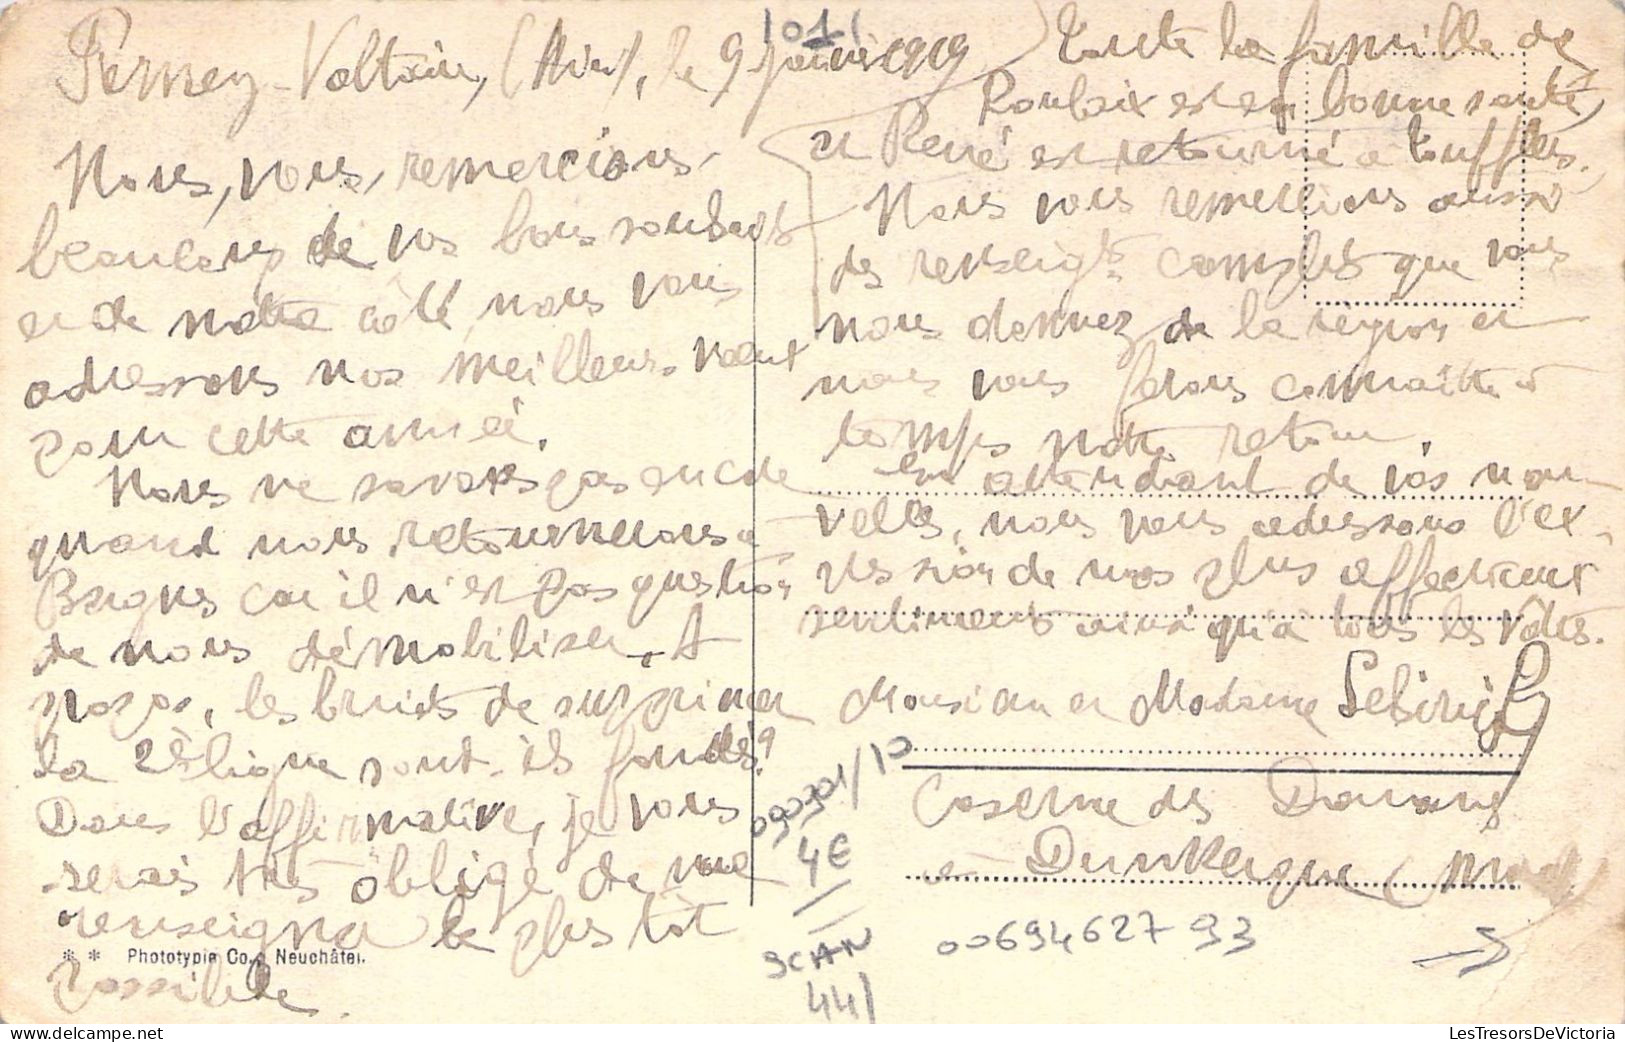 Ferney-Voltaire, (Ain), le 9 janvier 1919
Nous, vous, remercions
beaucoup de vos bons souhaits
et de notre côté, nous vous
adressons nos meilleurs voeux
pour cette année.
Nous ne savons pas encore
quand nous retournerons à
Bergues car il n'est pas question
de nous démobiliser. A
propos, les bruits de supprimer
la 2è ligne sont-ils fondés?
Dans l'affirmative, je vous
serais très obligé de me
renseigner le plus tôt
possible.
* * Phototypie Co., Neuchâtel.
101
Toute la famille de
Roubaix est en bonne santé,
et René est retourné à
Nous vous remercions aussi
des renseigts complets que vous
nous donnez de la région et
nous vous ferons connaître à
temps notre retour.
En attendant de vos nou-
velles, nous vous adressons l'ex-
pression de nos plus affectueux
sentiments ainsi qu'à tous les vôtres.
Monsieur et Madame
Caserne des Douanes
à Dunkerque (Nord)
090301/10
4€
SCAN
441
0069462793
LesTresorsDeVictoria.com